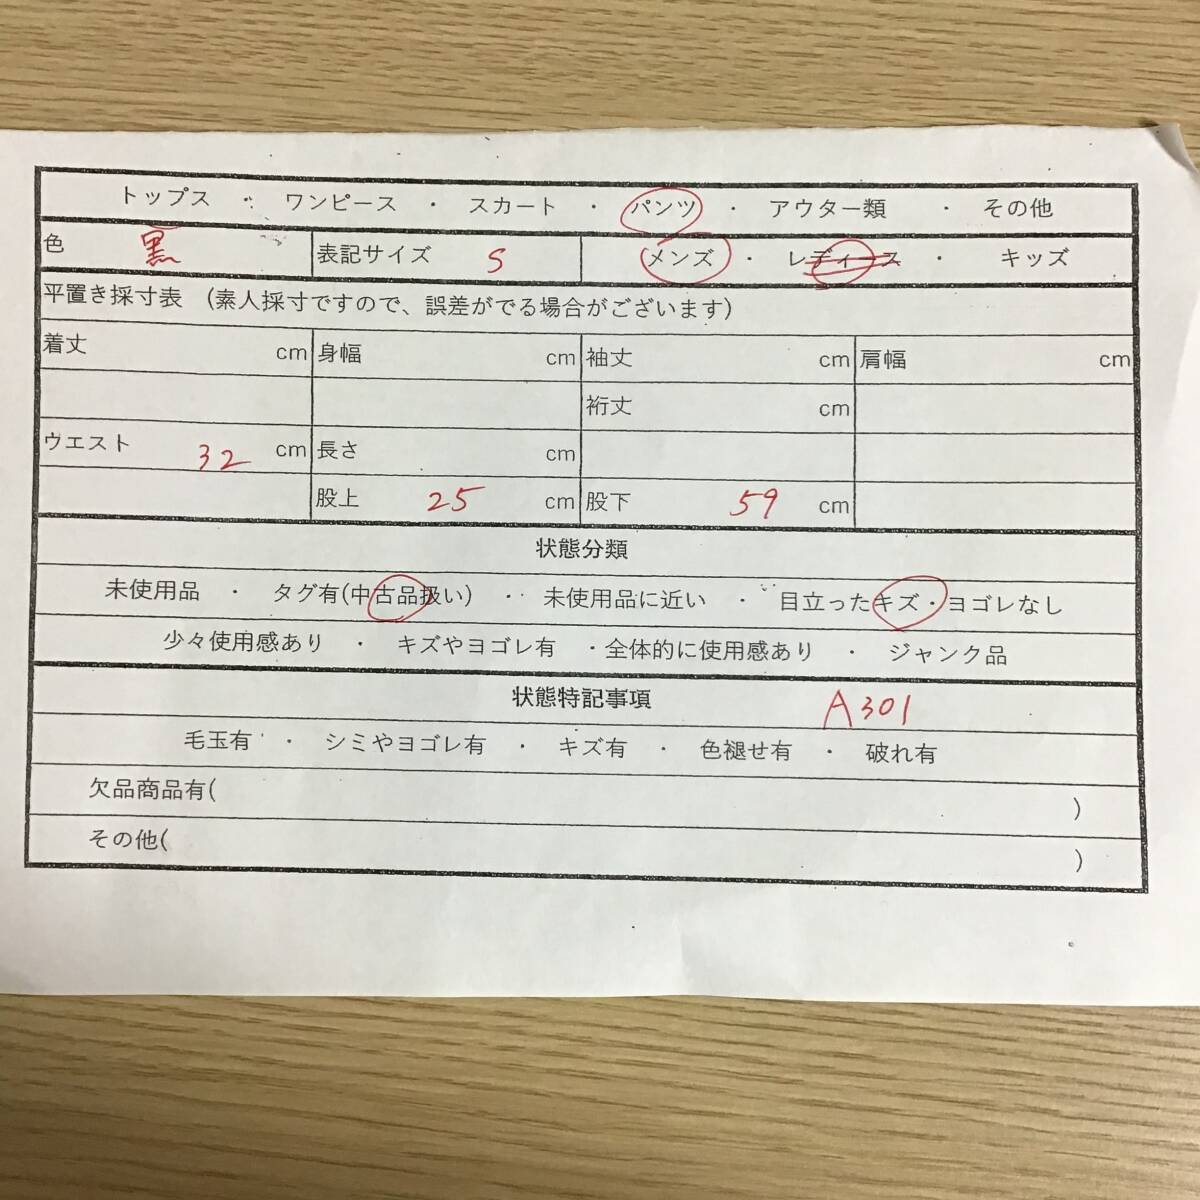 トップス ・ ワンピース ・ スカート ・ パンツ ・ アウター類 ・ その他
色 黒 表記サイズ S メンズ ・ レディース ・ キッズ
平置き採寸表 (素人採寸ですので、誤差がでる場合がございます)
着丈 cm 身幅 cm 袖丈 cm 肩幅 cm
裄丈 cm
ウエスト 32 cm 長さ cm
股上 25 cm 股下 59 cm
状態分類
未使用品 ・ タグ有(中古品扱い) ・ 未使用品に近い ・ 目立ったキズ・ヨゴレなし
少々使用感あり ・ キズやヨゴレ有 ・全体的に使用感あり ・ ジャンク品
状態特記事項 A301
毛玉有 ・ シミやヨゴレ有 ・ キズ有 ・ 色褪せ有 ・ 破れ有
欠品商品有( )
その他( )